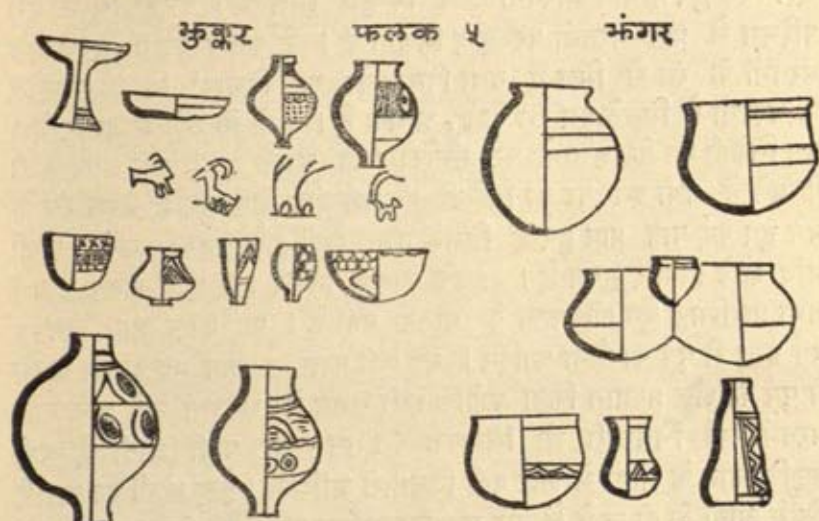 झुकर फलक ५ झंगर